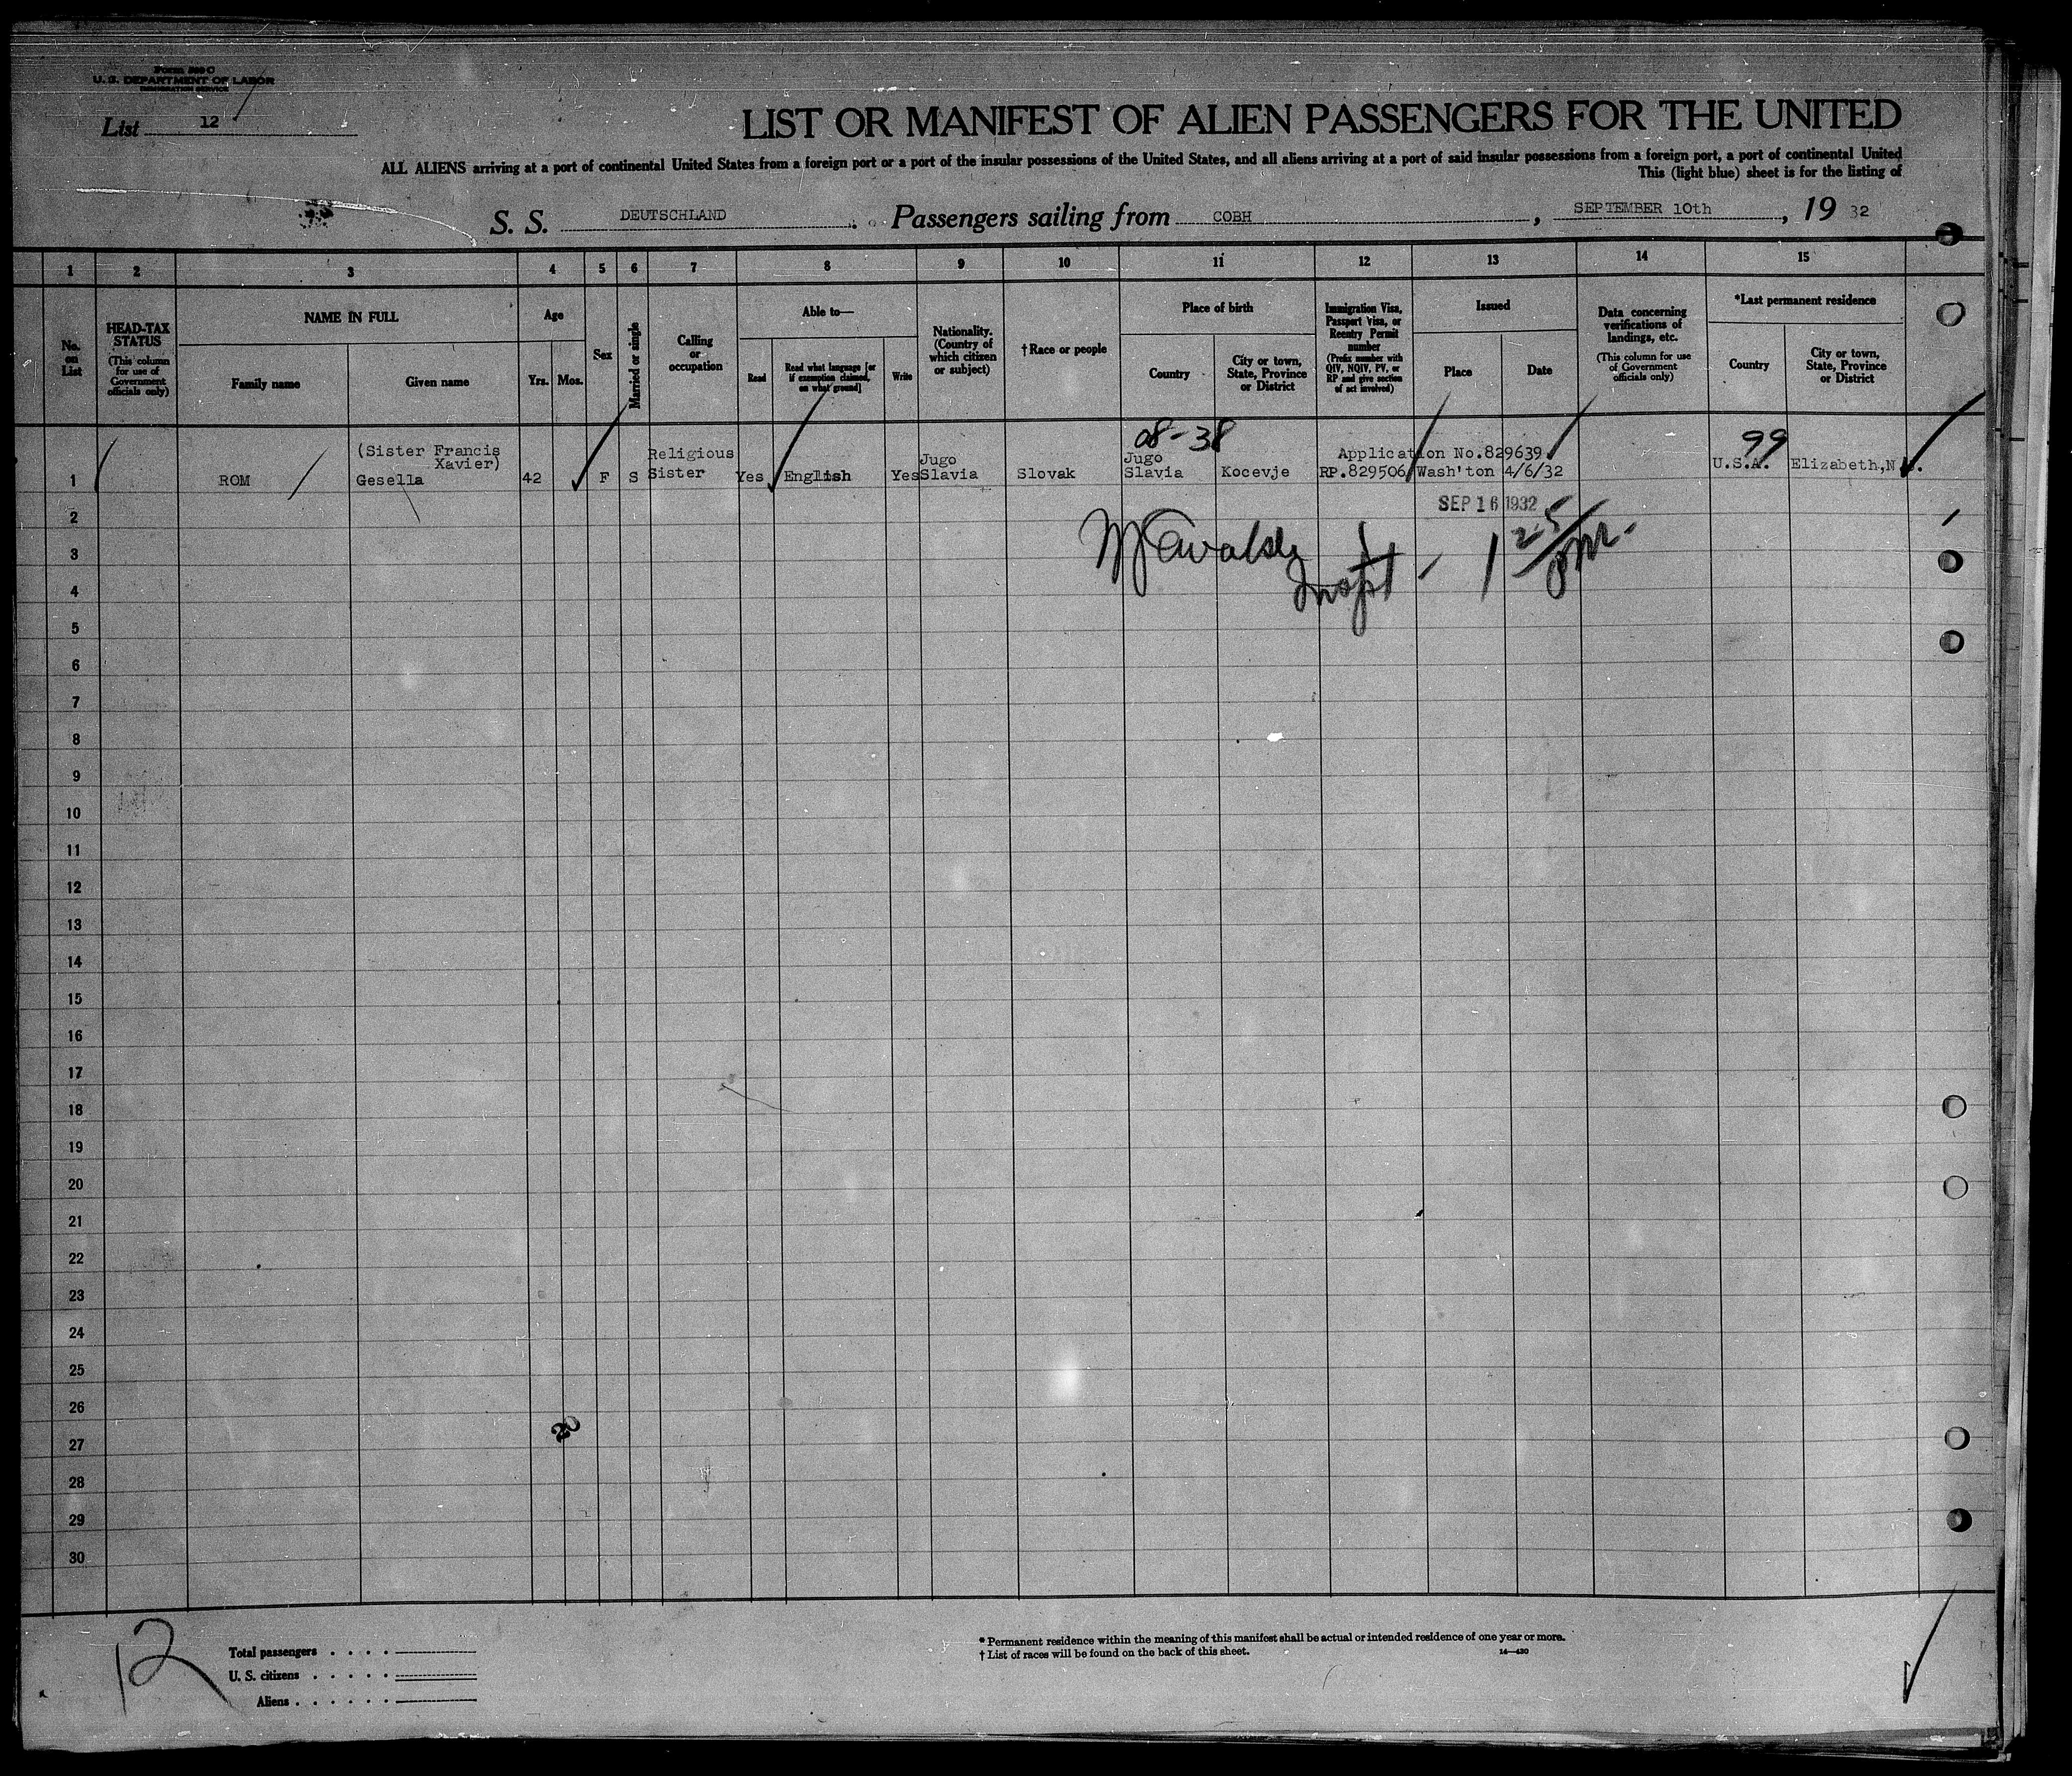 Form 500 C
U. S. DEPARTMENT OF LABOR
IMMIGRATION SERVICE
List 12
LIST OR MANIFEST OF ALIEN PASSENGERS FOR THE UNITED
ALL ALIENS arriving at a port of continental United States from a foreign port or a port of the insular possessions of the United States, and all aliens arriving at a port of said insular possessions from a foreign port, a port of continental United
This (light blue) sheet is for the listing of
S. S. DEUTSCHLAND Passengers sailing from COBH, SEPTEMBER 10th, 19 32
1 2 3 4 5 6 7 8 9 10 11 12 13 14 15
No. on List
HEAD-TAX STATUS
(This column for use of Government officials only)
NAME IN FULL
Family name
Given name
Age
Yrs. Mos.
Sex
Married or single
Calling or occupation
Able to—
Read
Read what language [or if exemption claimed, on what ground]
Write
Nationality. (Country of which citizen or subject)
†Race or people
Place of birth
Country
City or town, State, Province or District
Immigration Visa, Passport Visa, or Reentry Permit number
(Prefix number with QIV, NQIV, PV, or RP and give section of act involved)
Issued
Place
Date
Data concerning verifications of landings, etc.
(This column for use of Government officials only)
*Last permanent residence
Country
City or town, State, Province or District
08-38
99
(Sister Francis Xavier)
Religious Sister
Application No.829639
1 ROM Gesella 42 F S Yes English Yes Jugo Slavia Slovak Jugo Slavia Kocevje RP.829506 Wash'ton 4/6/32 U.S.A. Elizabeth,N
SEP 16 1932
2
Inspt - 1 25/pm.
3
4
5
6
7
8
9
10
11
12
13
14
15
16
17
18
19
20
21
22
23
24
25
26
20
27
28
29
30
12
Total passengers . . . .
U. S. citizens . . . . .
Aliens . . . . . .
* Permanent residence within the meaning of this manifest shall be actual or intended residence of one year or more.
† List of races will be found on the back of this sheet.
14—430